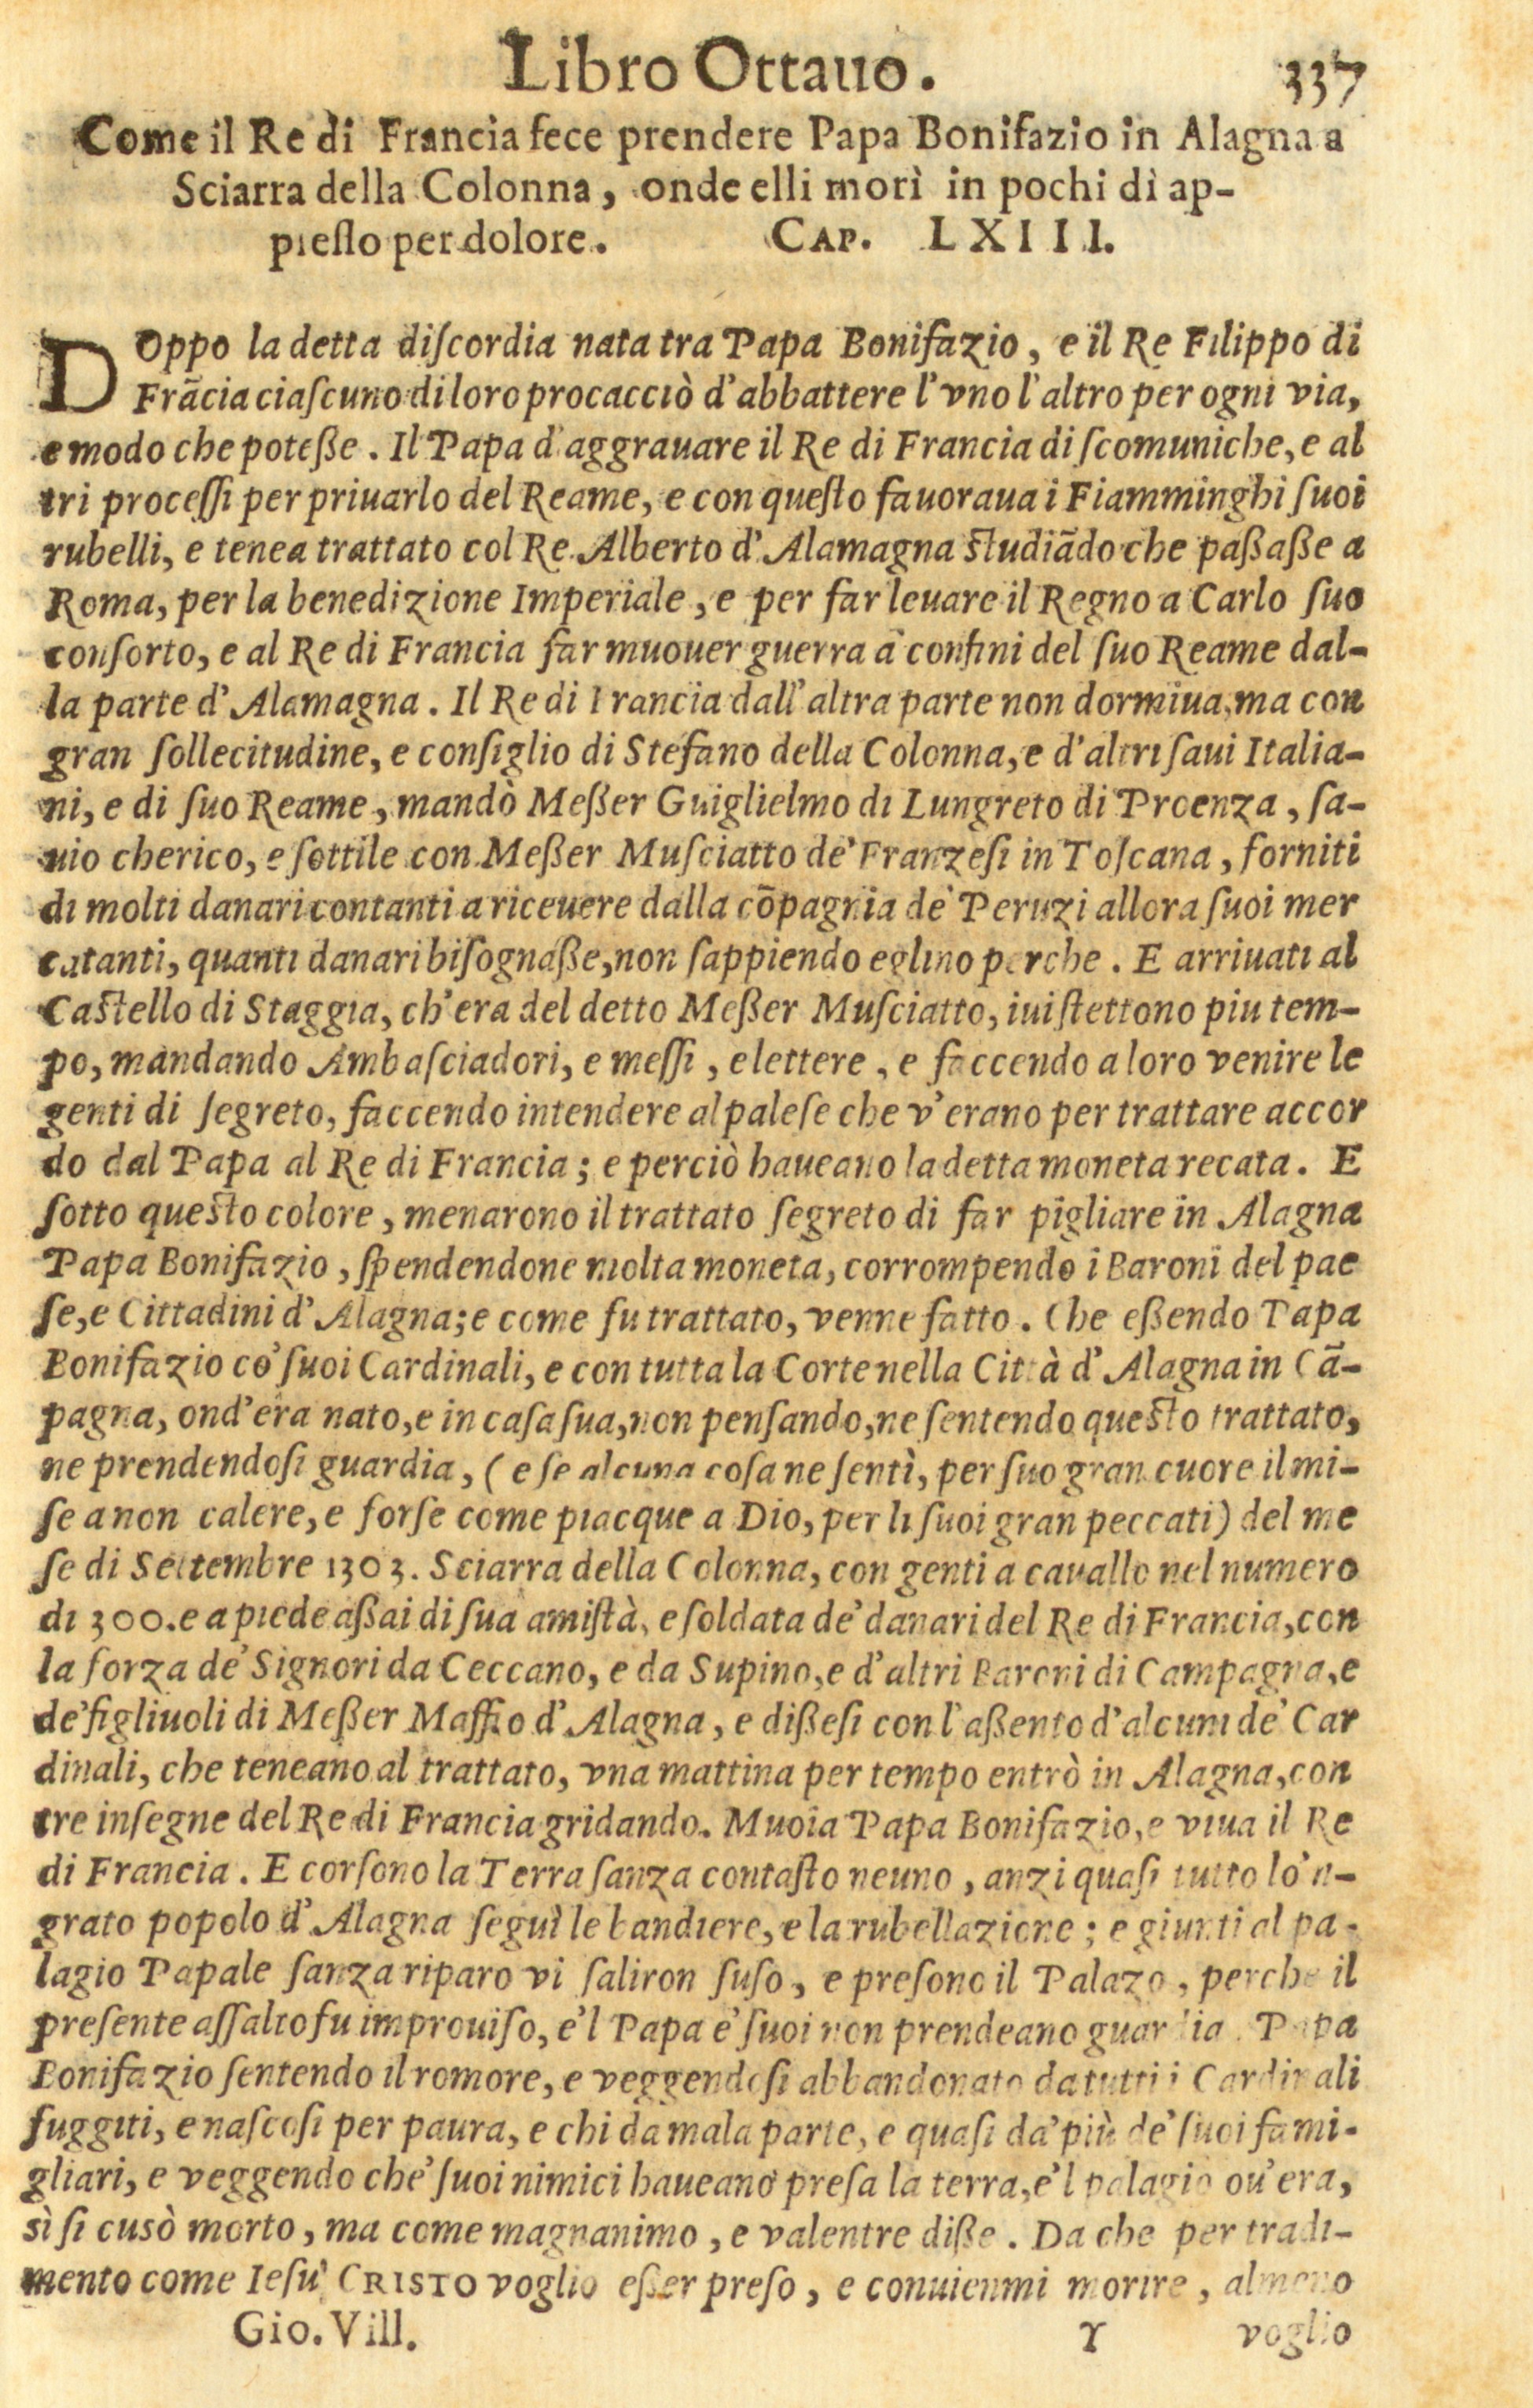 Libro Ottauo. 337
Come il Re di Francia fece prendere Papa Bonifazio in Alagna a
Sciarra della Colonna, onde elli morì in pochi dì ap-
piesso per dolore. CAP. LXIII.
DOppo la detta diſcordia nata tra Papa Bonifazio, e il Re Filippo di
Frãcia ciaſcuno di loro procacciò d'abbattere l'vno l'altro per ogni via,
e modo che poteße. Il Papa d'aggrauare il Re di Francia di ſcomuniche, e al
tri proceſſi per priuarlo del Reame, e con queſto fauoraua i Fiamminghi ſuoi
rubelli, e tenea trattato col Re Alberto d'Alamagna ſtudiãdo che paßaße a
Roma, per la benedizione Imperiale, e per far leuare il Regno a Carlo ſuo
conſorto, e al Re di Francia far muouer guerra a' confini del ſuo Reame dal-
la parte d'Alamagna. Il Re di Francia dall'altra parte non dormiua, ma con
gran ſollecitudine, e conſiglio di Stefano della Colonna, e d'altri ſaui Italia-
ni, e di ſuo Reame, mandò Meßer Guiglielmo di Lungreto di Proenza, ſa-
uio cherico, e ſottile con Meßer Muſciatto de' Franzeſi in Toſcana, forniti
di molti danari contanti a riceuere dalla cõpagnia de' Peruzi allora ſuoi mer
catanti, quanti danari biſognaße, non ſappiendo eglino perche. E arriuati al
Caſtello di Staggia, ch'era del detto Meßer Muſciatto, iui ſtettono piu tem-
po, mandando Ambaſciadori, e meſſi, e lettere, e faccendo a loro venire le
genti di ſegreto, faccendo intendere al paleſe che v'erano per trattare accor
do dal Papa al Re di Francia; e perciò haueano la detta moneta recata. E
ſotto queſto colore, menarono il trattato ſegreto di far pigliare in Alagna
Papa Bonifazio, ſpendendone molta moneta, corrompendo i Baroni del pae
ſe, e Cittadini d'Alagna; e come fu trattato, venne fatto. Che eßendo Papa
Bonifazio co' ſuoi Cardinali, e con tutta la Corte nella Città d'Alagna in Cã-
pagna, ond'era nato, e in caſa ſua, non penſando, ne ſentendo queſto trattato,
ne prendendoſi guardia, (e ſe alcuna coſa ne ſentì, per ſuo gran cuore il mi-
ſe a non calere, e forſe come piacque a Dio, per li ſuoi gran peccati) del me
ſe di Settembre 1303. Sciarra della Colonna, con genti a cauallo nel numero
di 300. e a piede aßai di ſua amiſtà, e ſoldata de' danari del Re di Francia, con
la forza de' Signori da Ceccano, e da Supino, e d'altri Baroni di Campagna, e
de' figliuoli di Meßer Maffio d'Alagna, e dißeſi con l'aßento d'alcuni de' Car
dinali, che teneano al trattato, vna mattina per tempo entrò in Alagna, con
tre inſegne del Re di Francia gridando. Muoia Papa Bonifazio, e viua il Re
di Francia. E corſono la Terra ſanza contaſto neuno, anzi quaſi tutto lo 'n-
grato popolo d'Alagna ſeguì le bandiere, e la rubellazione; e giunti al pa-
lagio Papale ſanza riparo vi ſaliron ſuſo, e preſono il Palazo, perche il
preſente aſſalto fu improuiſo, e 'l Papa e' ſuoi non prendeano guardia. Papa
Bonifazio ſentendo il romore, e veggendoſi abbandonato da tutti i Cardinali
fuggiti, e naſcoſi per paura, e chi da mala parte, e quaſi da' più de' ſuoi fami-
gliari, e veggendo che' ſuoi nimici haueano preſa la terra, e 'l palagio ou'era,
sì ſi cusò morto, ma come magnanimo, e valentre diße. Da che per tradi-
mento come Ieſu' CRISTO voglio eßer preſo, e conuienmi morire, almeno
Gio. Vill. Y voglio